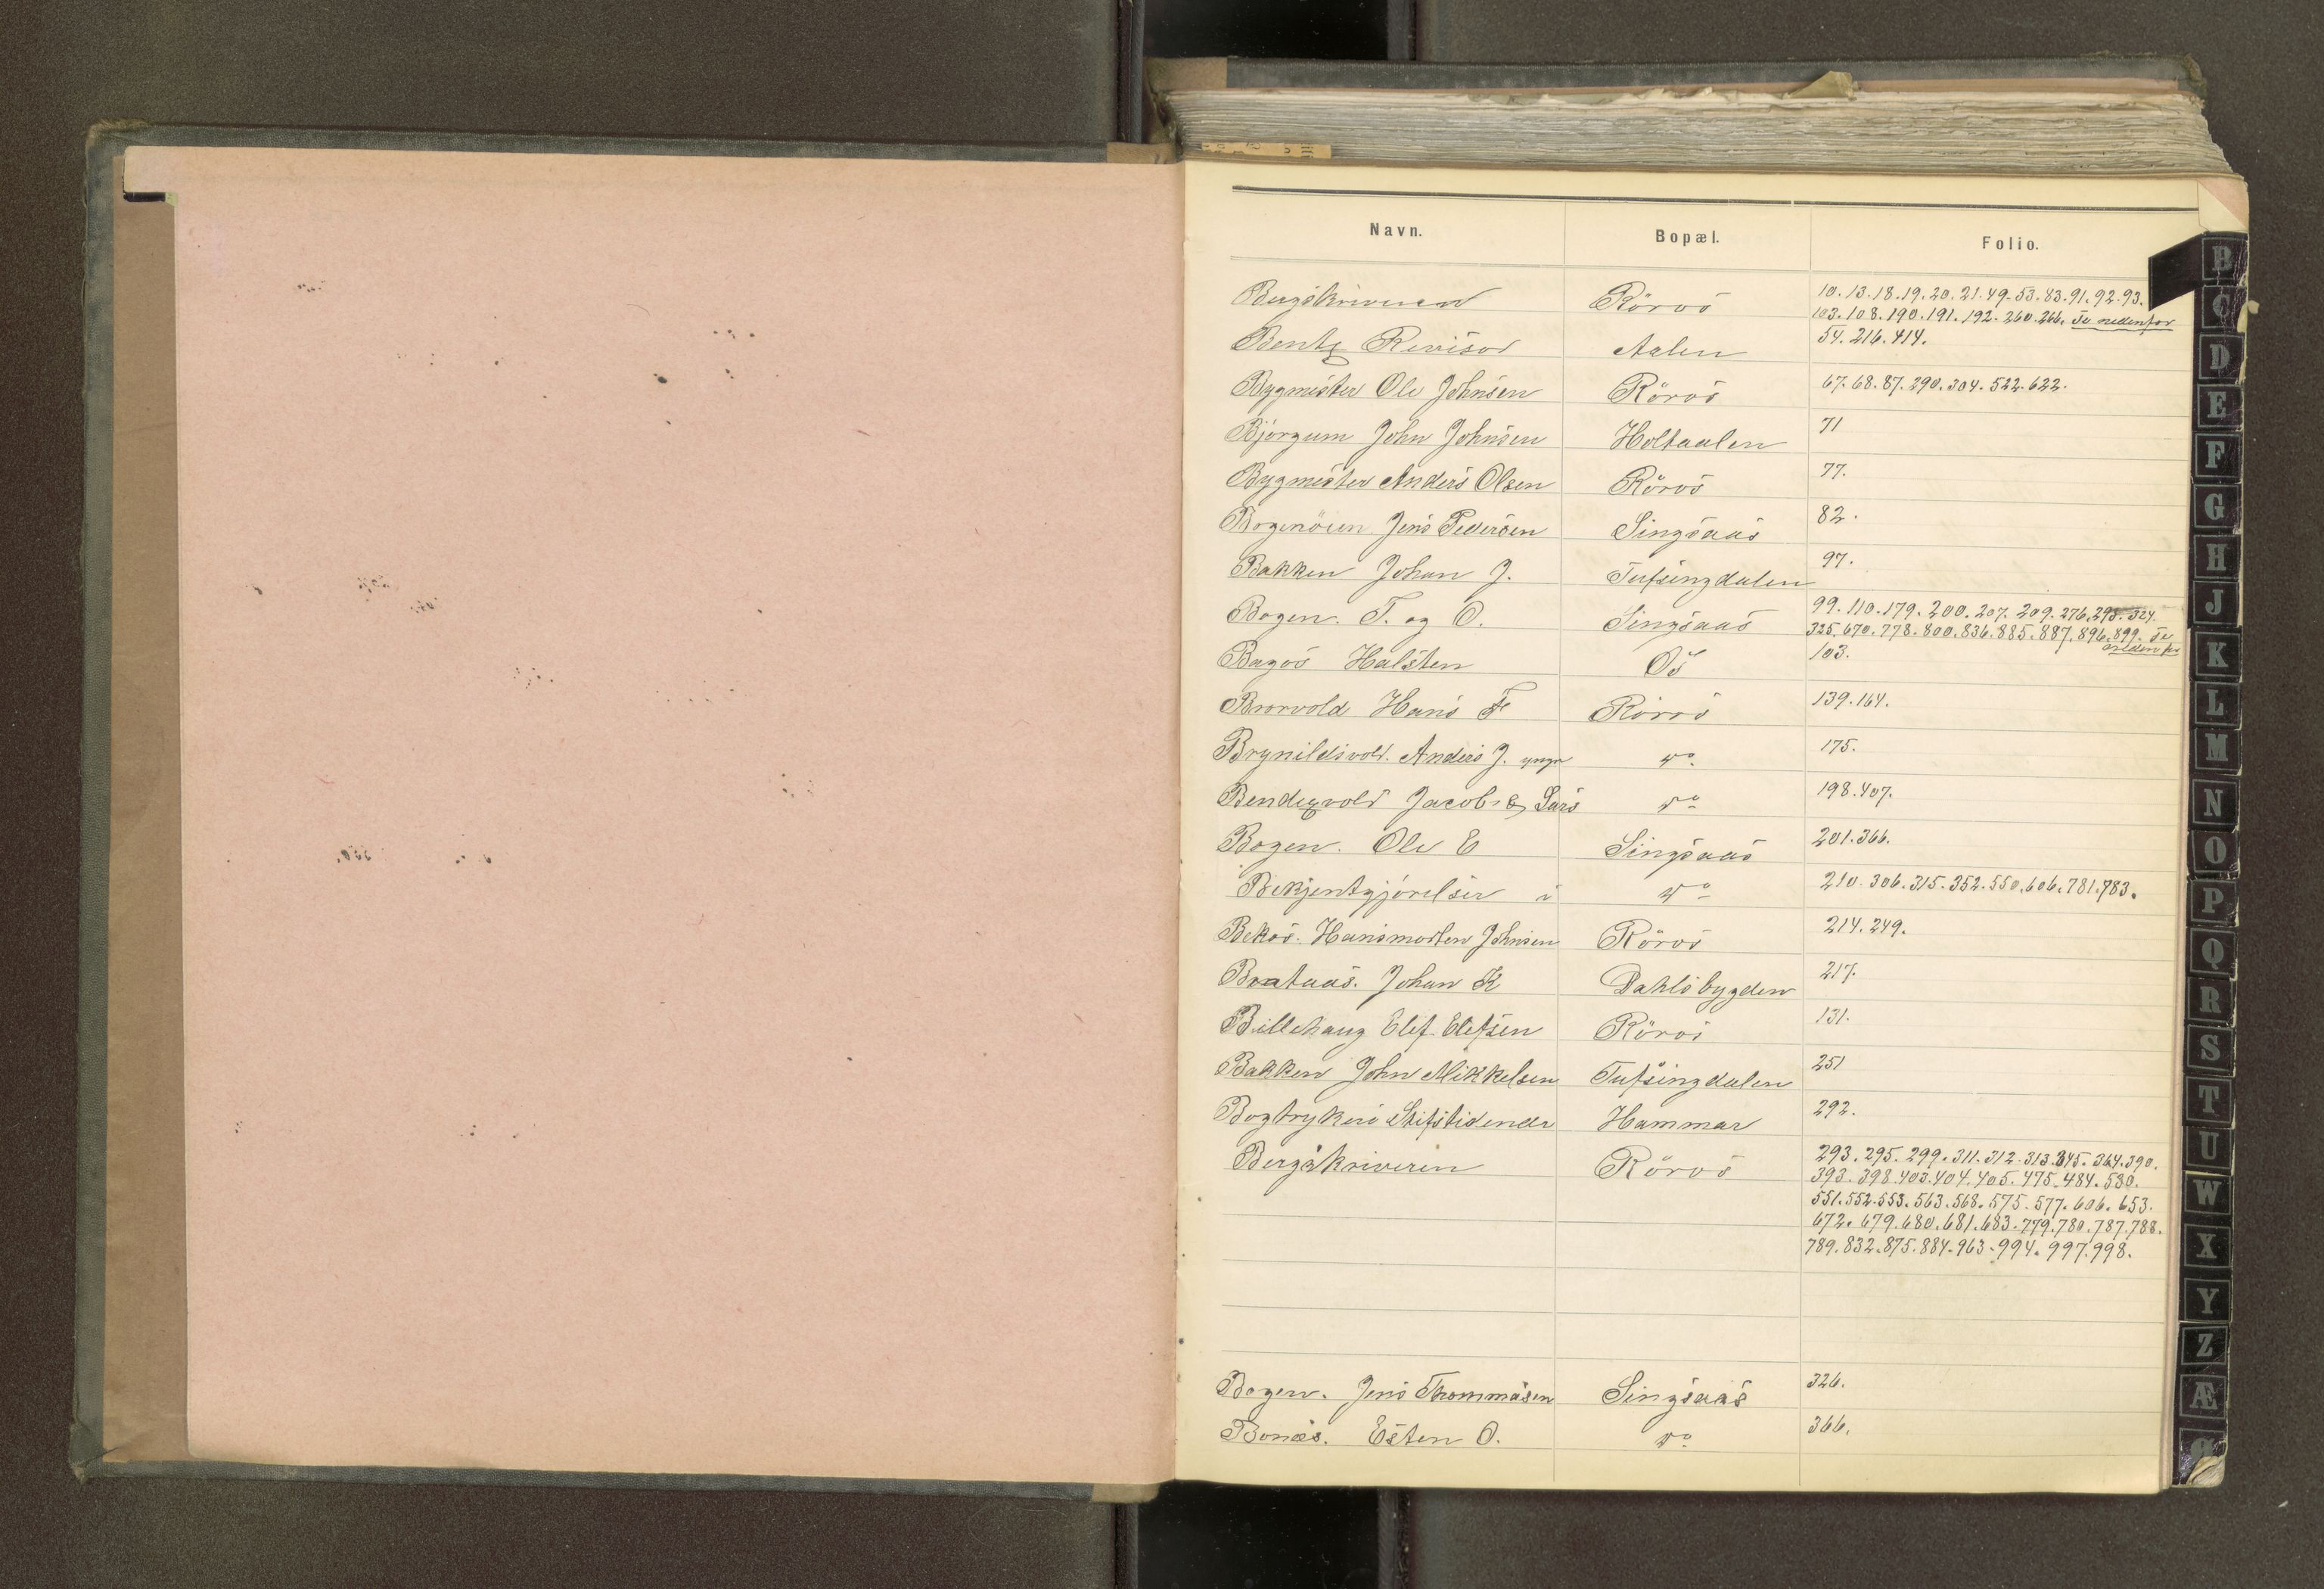 Navn. Bopæl. Folio.
Bergskriveren Röros 10.13.18.19.20.21.49.53.83.91.92.93.
103.108.190.191.192.260.266. Se nedenfor
Bentz Revisor Aalen 54.216.414.
Bygmester Ole Johnsen Röros 67.68.87.290.304.522.622.
Bjørgum John Johnsen Holtaalen 71
Bygmester Anders Olsen Röros 77.
Bogenöien Jens Pedersen Singsaas 82.
Bakken Johan J. Tufsingdalen 97.
Bogen. T. og O. Singsaas 99.110.179.200.207.209.276.295.324.
325.670.778.800.836.885.887.896.899. Se
nedenfor
Bagös Halsten Os 103.
Brorvold Hans F Röros 139.164.
Brynildsvold. Anders J. yngr do. 175.
Bendixvold Jacob & Lars do 198.407.
Bogen. Ole E Singsaas 201.366.
Bekjentgjörelser i do 210.306.315.352.550.606.781.783.
Bekös. Hansmorten Johnsen Röros 214.249.
Brataas. Johan K Dahlsbygden 217.
Billehaug Elef Elefsen Röros 131.
Bakken John Mikkelsen Tufsingdalen 251
Bogtrykeri Stifstidende Hammar 292.
Bergskriveren Röros 293.295.299.311.312.313.345.364.390.
393.398.403.404.405.475.484.530.
551.552.553.563.568.575.577.606.653.
672.679.680.681.683.779.780.787.788.
789.832.875.884.963.994.997.998.
Bogen. Jens Thommasen Singsaas 326.
Bonæs. Esten O. do 366.
B
C
D
E
F
G
H
J
K
L
M
N
O
P
Q
R
S
T
U
W
X
Y
Z
Æ